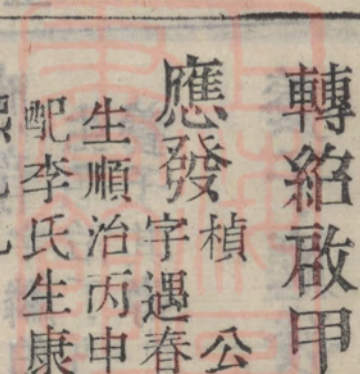 轉紹啟甲
應發
楨公
字遇春
生順治丙申
配李氏生康
熙